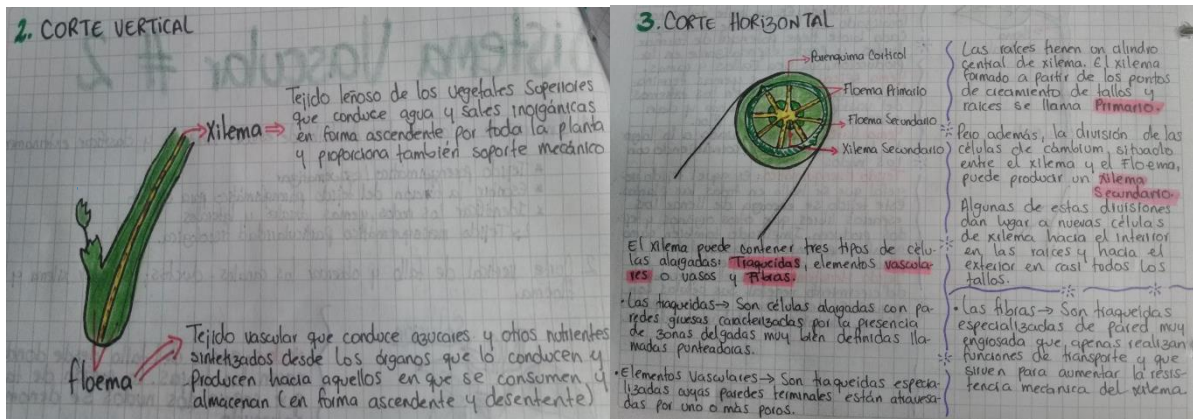 2. CORTE VERTICAL
Xilema ⇒
Tejido leñoso de los vegetales Superiores
que conduce agua y sales inorgánicas
en forma ascendente por toda la planta
y proporciona también soporte mecánico
floema
Tejido vascular que conduce azucares y otros nutrientes
sintetizados desde los órganos que lo conducen y
Producen hacia aquellos en que se consumen, y
almacenan (en forma ascendente y desentente)
3. CORTE HORIZONTAL
Parenquima Cortical
Floema Primario
Floema Secundario
Xilema Secundario
El xilema puede contener tres tipos de célu-
las alargadas: Traqueidas, elementos vascula-
res o vasos y Fibras.
• Las traqueidas → Son células alargadas con pa-
redes gruesas caracterizadas por la presencia
de zonas delgadas muy bien definidas lla-
madas punteaduras.
• Elementos Vasculares → Son traqueidas especia-
lizadas cuyas paredes terminales están atravesa-
das por uno o más poros.
Las raíces tienen un cilindro
central de xilema. El xilema
formado a partir de los puntos
de crecimiento de tallos y
raíces se llama Primario.
Pero además, la división de las
células de cambium, situado
entre el xilema y el Floema,
puede producir un xilema
Secundario.
Algunas de estas divisiones
dan lugar a nuevas células
de xilema hacia el interior
en las raíces y hacia el
exterior en casi todos los
tallos.
• Las fibras → Son traqueidas
especializadas de pared muy
engrosada que, apenas realizan
funciones de transporte y que
sirven para aumentar la resis-
tencia mecánica del xilema.